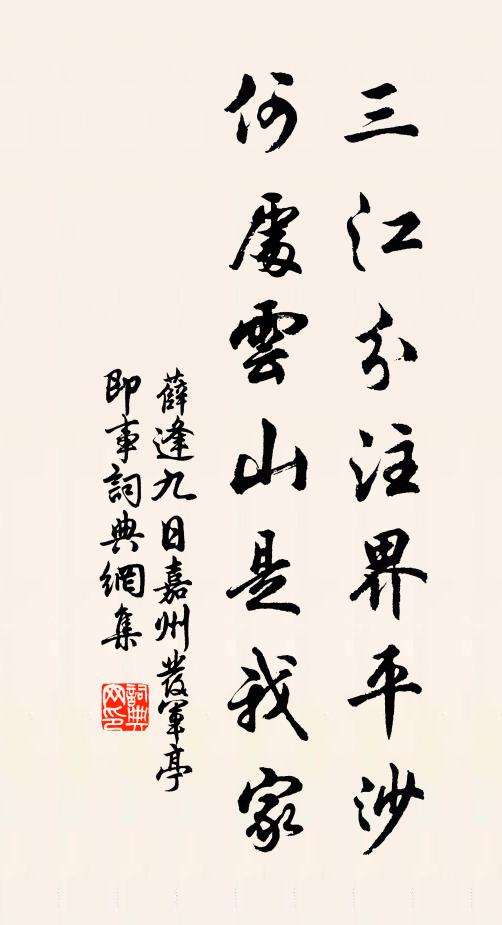 三江分注界平沙
何處雲山是我家
薛逢九日嘉州發軍亭
即事詞典網集
詞典
网印